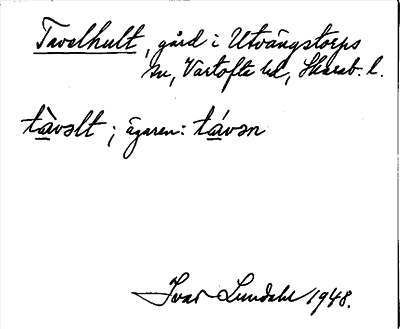 Tavelhult, gård i Utvängstorps
sn, Vartofta hd, Skarab. l.
tàvəlt; ägaren: távən
Ivar Lundahl 1948.